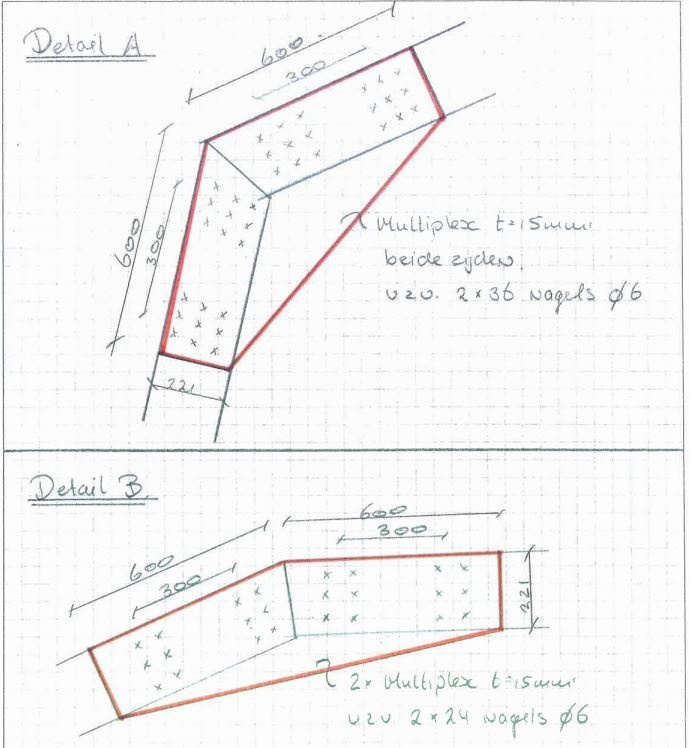 Detail A
600
300
600
300
Multiplex t=15mm
beide zijden
v.z.v. 2×36 nagels φ6
221
Detail B
600
300
600
300
221
2× Multiplex t=15mm
v.z.v. 2×24 nagels φ6